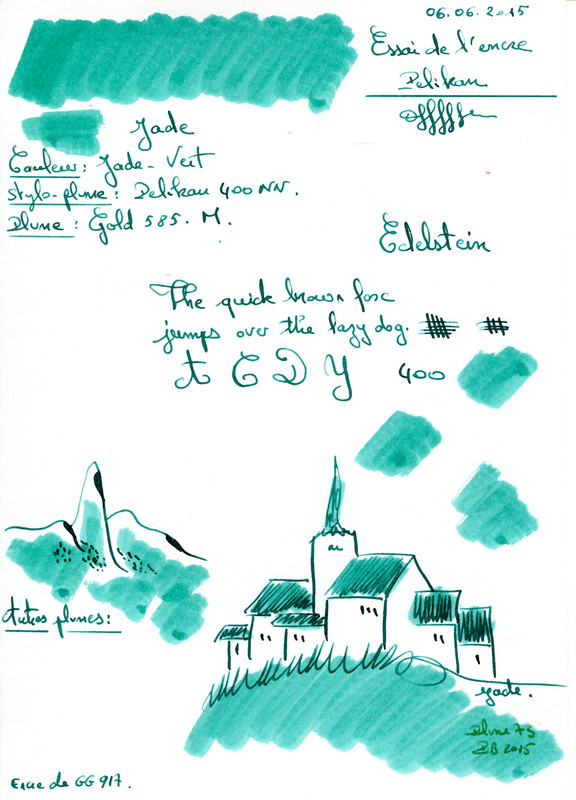 06.06.2015
Essai de l'encre
Pelikan
Jade
Couleur: Jade-Vert
stylo-plume: Pelikan 400 NN.
Plume: Gold 585. M.
Edelstein
The quick brown fox
jumps over the lazy dog.
A C D Y 400
Autres plumes:
Jade.
Plume 73
2015
Encre de GG 917.